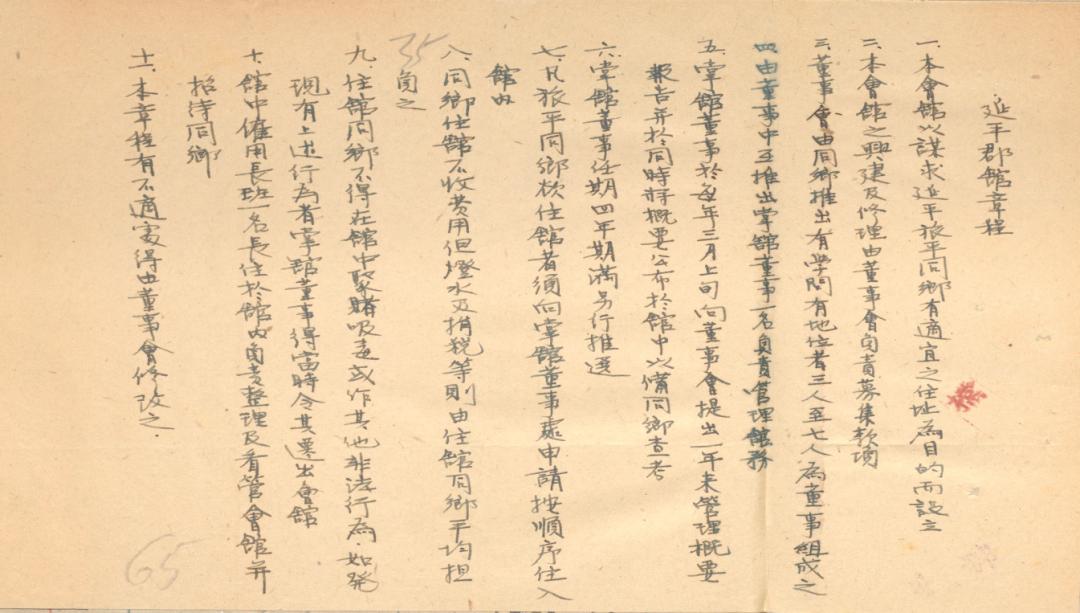 延平郡館章程
一、本會館以謀求延平旅平同鄉有適宜之住址為目的而設立
二、本會館之興建及修理由董事會負責募集款項
三、董事會由同鄉推出有學問有地位者三人至七人為董事組成之
四、由董事中互推出掌館董事一名負責管理館務
五、掌館董事於每年三月上旬向董事會提出一年來管理概要
報告并於同時將概要公布於館中以備同鄉查考
六、掌館董事任期四年期滿另行推選
七、凡旅平同鄉欲住館者須向掌館董事處申請按順序住入
館內
八、同鄉住館不收費用但燈水及捐稅等則由住館同鄉平均担
負之
九、住館同鄉不得在館中聚賭吸毒或作其他非法行為、如發
現有上述行為者掌館董事得當時令其遷出會館
十、館中僱用長班一名長住於館內負責整理及看管會館并
招待同鄉
十一、本章程有不適處得由董事會修改之.
35
65